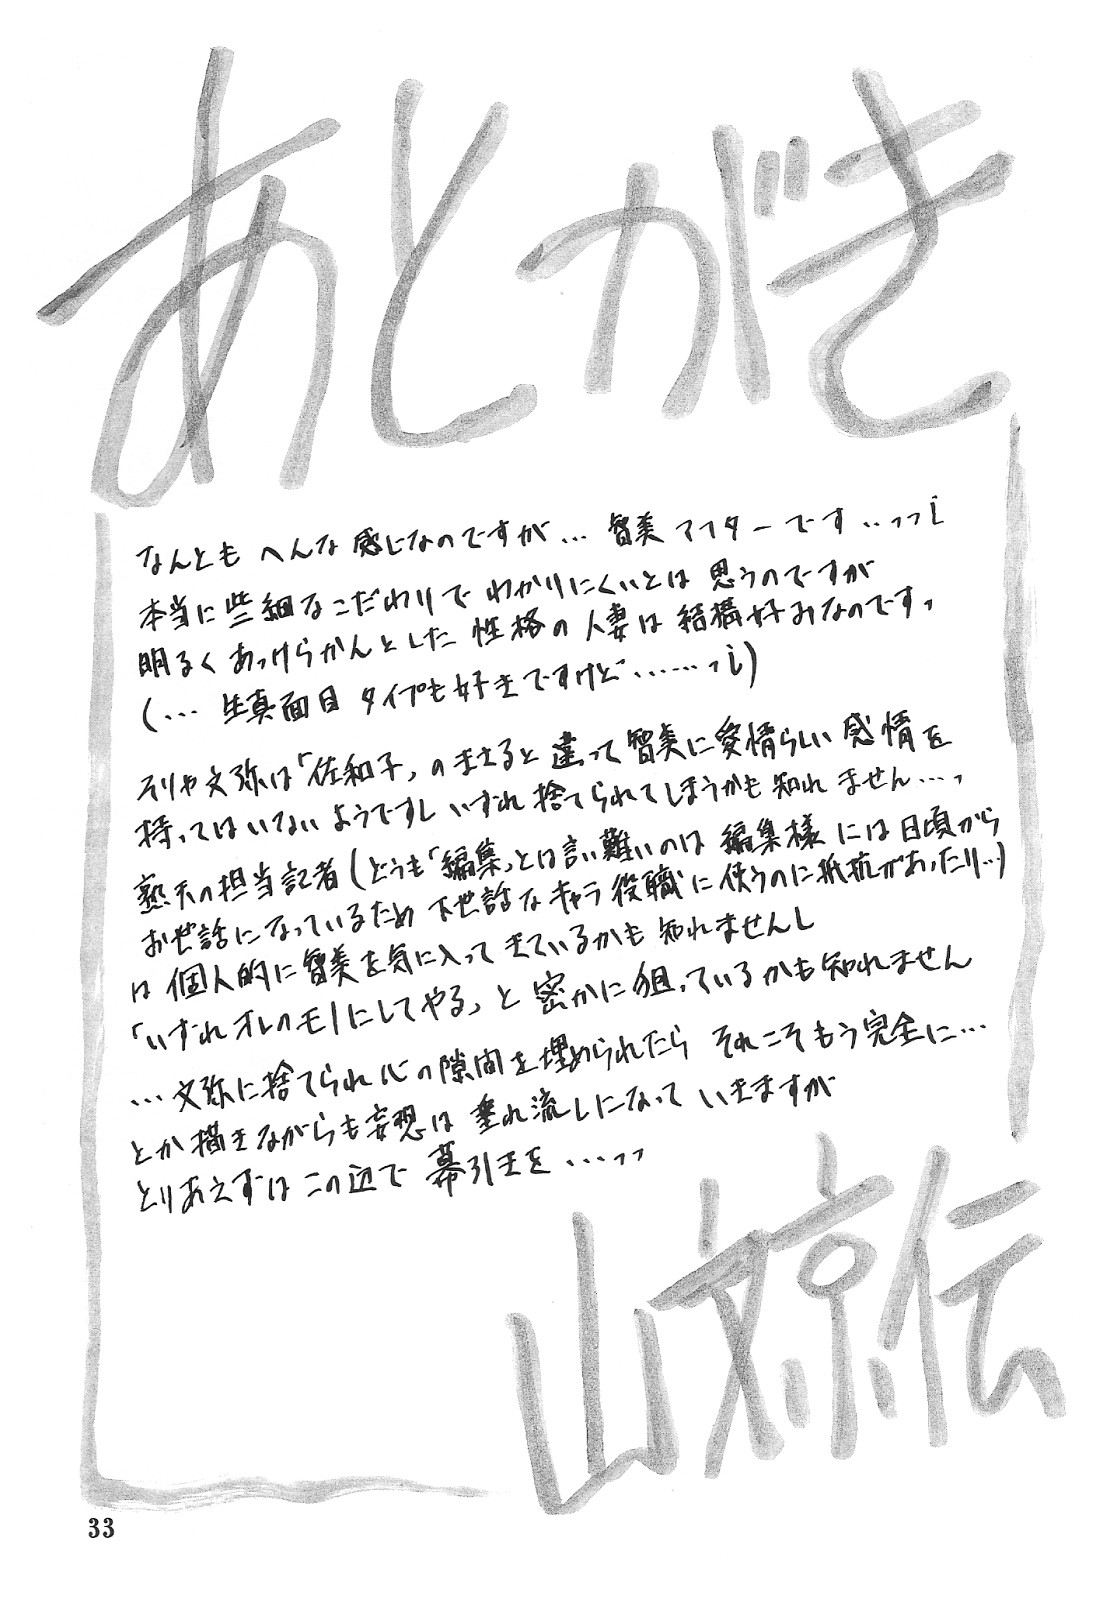 あとがき
なんとも へんな 感じなのですが… 智美 アフターです…っっ
本当に些細なこだわりで わかりにくいとは 思うのですが
明るく あっけらかんとした 性格の 人妻は 結構好みなのです。
(… 生真面目 タイプも好きですけど……っ)
そりゃ文弥は「佐和子」のまさると違って智美に愛情らしい感情を
持ってはいないようですし いずれ 捨てられてしまうかも 知れません…っ
熟天の担当記者(どうも「編集」とは言い難いのは 編集様には日頃から
お世話になっているため 下世話な キャラ役職に使うのに抵抗があったり…)
は 個人的に智美を気に入って きているかも 知れませんし
「いずれオレのモノにしてやる」と 密かに狙っているかも知れません
…文弥に捨てられ心の隙間を埋められたら それこそもう完全に…
とか描きながらも妄想は 垂れ流しになって いきますが
とりあえずは この辺で 幕引きを…っっ
山文京伝
33